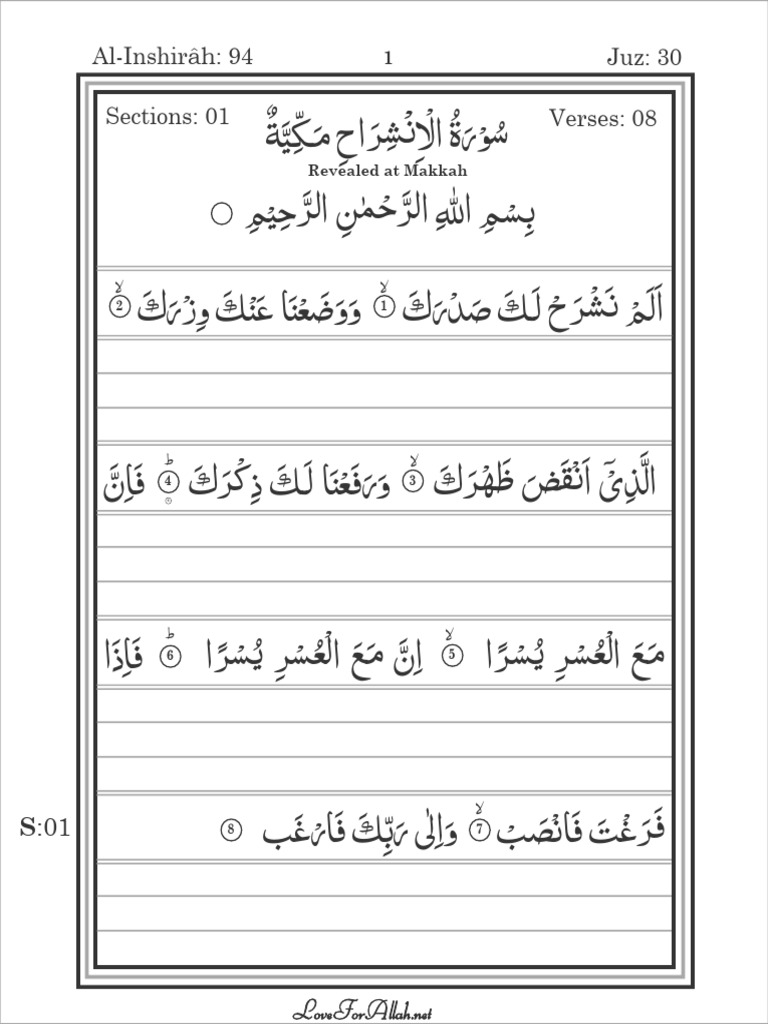 Al-Inshirâh: 94 1 Juz: 30
Sections: 01 سُوْرَةُ الْاِنْشِرَاحِ مَكِّيَّةٌ Verses: 08
Revealed at Makkah
بِسْمِ اللّٰهِ الرَّحْمٰنِ الرَّحِيْمِ ○
اَلَمْ نَشْرَحْ لَكَ صَدْرَكَ ۙ① وَوَضَعْنَا عَنْكَ وِزْرَكَ ۙ②
الَّذِيْۤ اَنْقَضَ ظَهْرَكَ ۙ③ وَرَفَعْنَا لَكَ ذِكْرَكَ ؕ④ فَاِنَّ
مَعَ الْعُسْرِ يُسْرًا ۙ⑤ اِنَّ مَعَ الْعُسْرِ يُسْرًا ؕ⑥ فَاِذَا
فَرَغْتَ فَانْصَبْ ۙ⑦ وَاِلٰى رَبِّكَ فَارْغَب ⑧
S:01
LoveForAllah.net